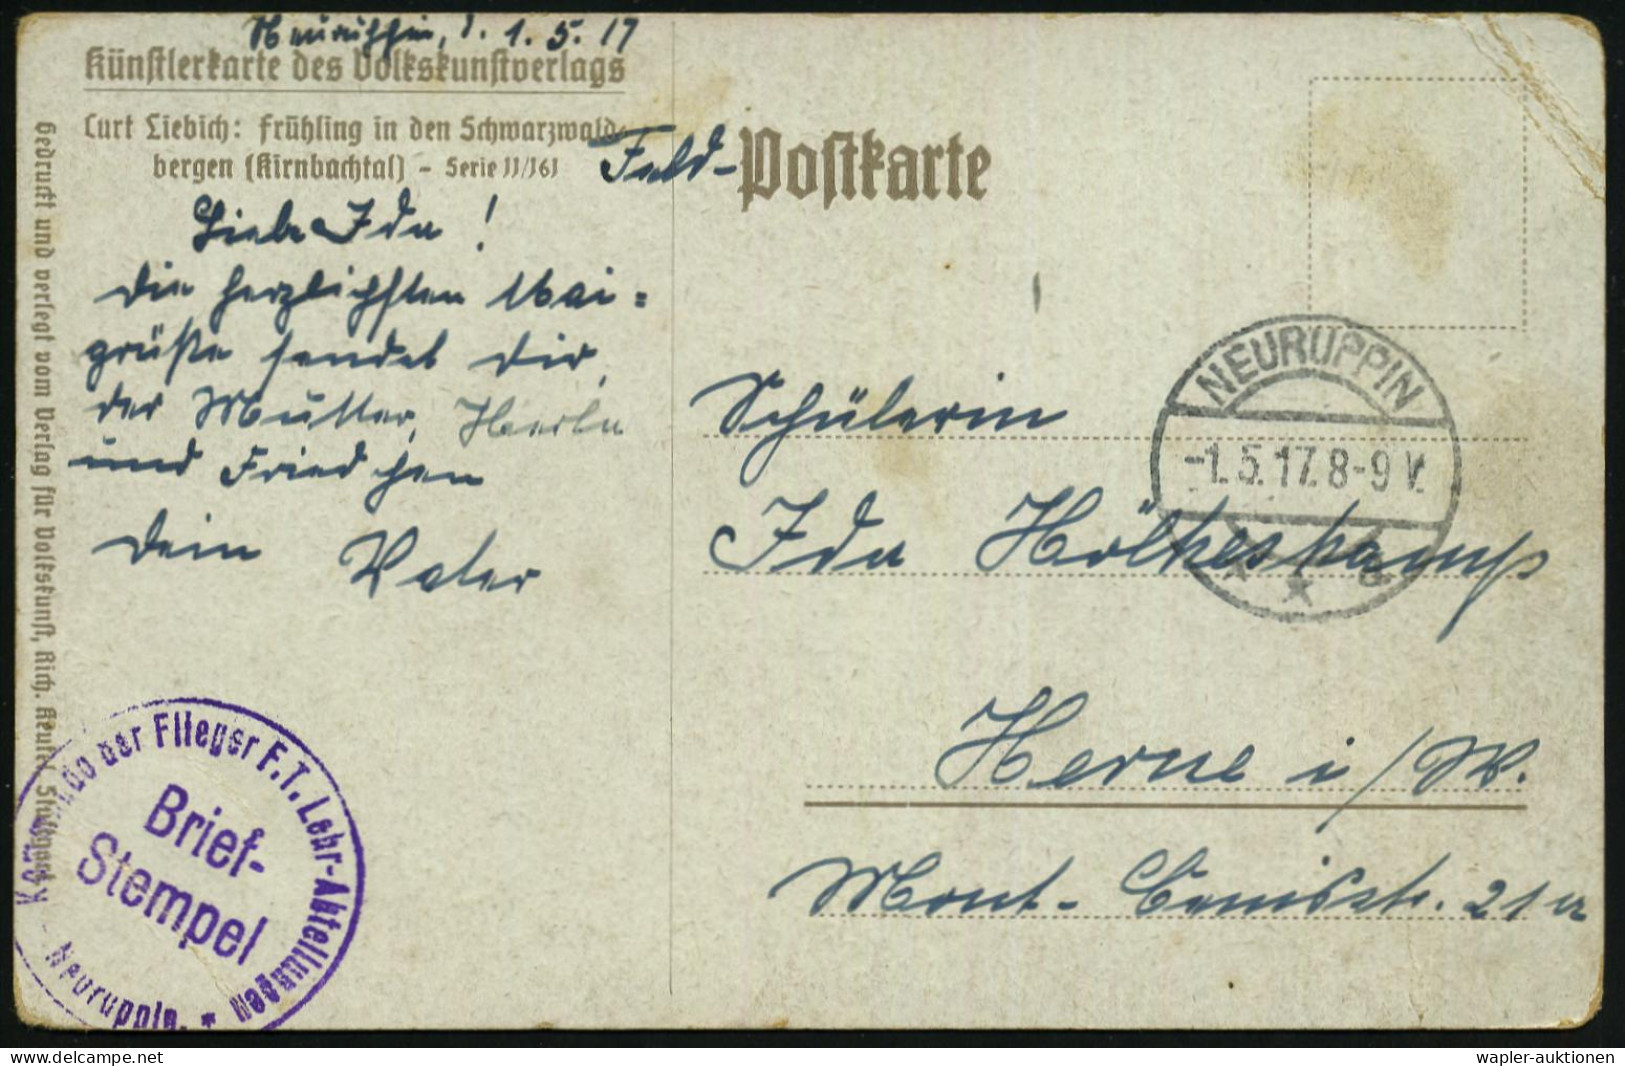 Neuruppin, d. 1. 5. 17
Künstlerkarte des Volkskunstverlags
Curt Liebich: Frühling in den Schwarzwald-
bergen (Kirnbachtal) - Serie 11/161
Liebe Ida!
Die herzlichsten Mai-
grüße sendet Dir,
der Mutter,
und Friedchen
Dein Vater
Gedruckt und verlegt vom Verlag für Volkskunst, Rich. Keutel Stuttgart
Kommando der Flieger F.T. Lehr-Abteilungen
Brief-
Stempel
Neuruppin. *
Feld-Postkarte
NEURUPPIN
-1.5.17. 8-9 V.
* * b
Schülerin
Ida Hölkeskamp
Herne i/W.
Mont-Cenisstr. 21a
delcampe.net
wapler-auktionen